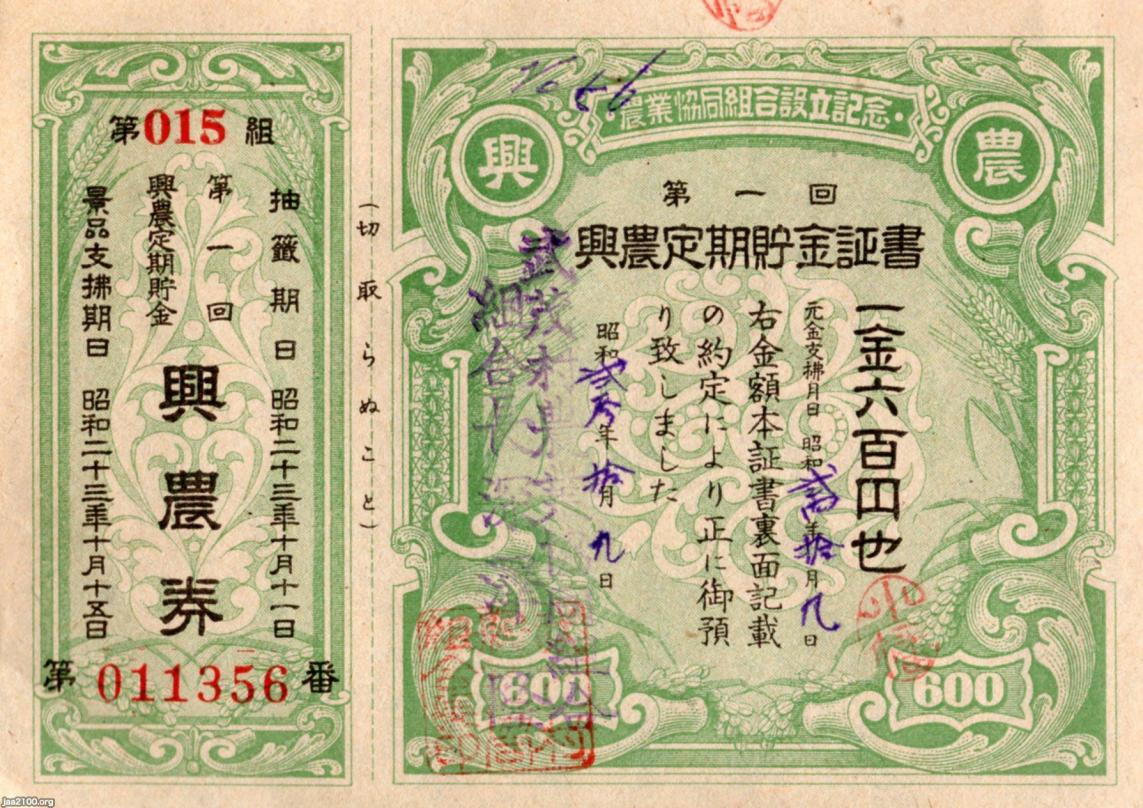 農業協同組合設立記念
興
農
第一回
興農定期貯金証書
一金六百円也
元金支拂月日 昭和 年拾月九日
右金額本証書裏面記載
の約定により正に御預
り致しました
昭和 年拾月九日
600
600
(切取らぬこと)
第015組
抽籤期日 昭和二十三年十月十一日
第一回
興農定期貯金
興農券
景品支拂期日 昭和二十三年十月十五日
第011356番
jaa2100.org